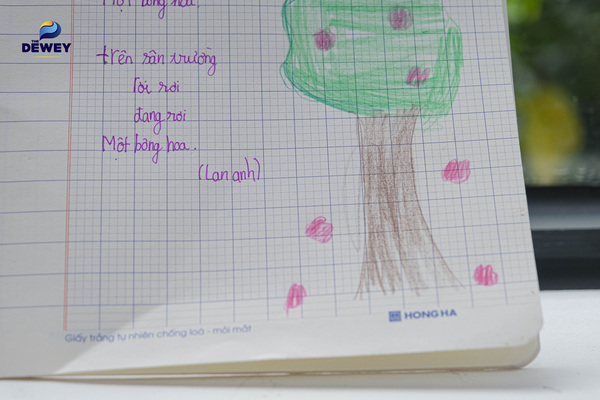 Một bông hoa.
THE
DEWEY
trên sân trường
rơi rơi
đang rơi
Một bông hoa.
(Lan anh)
Giấy trắng tự nhiên chống loá - mỏi mắt
HONG HA